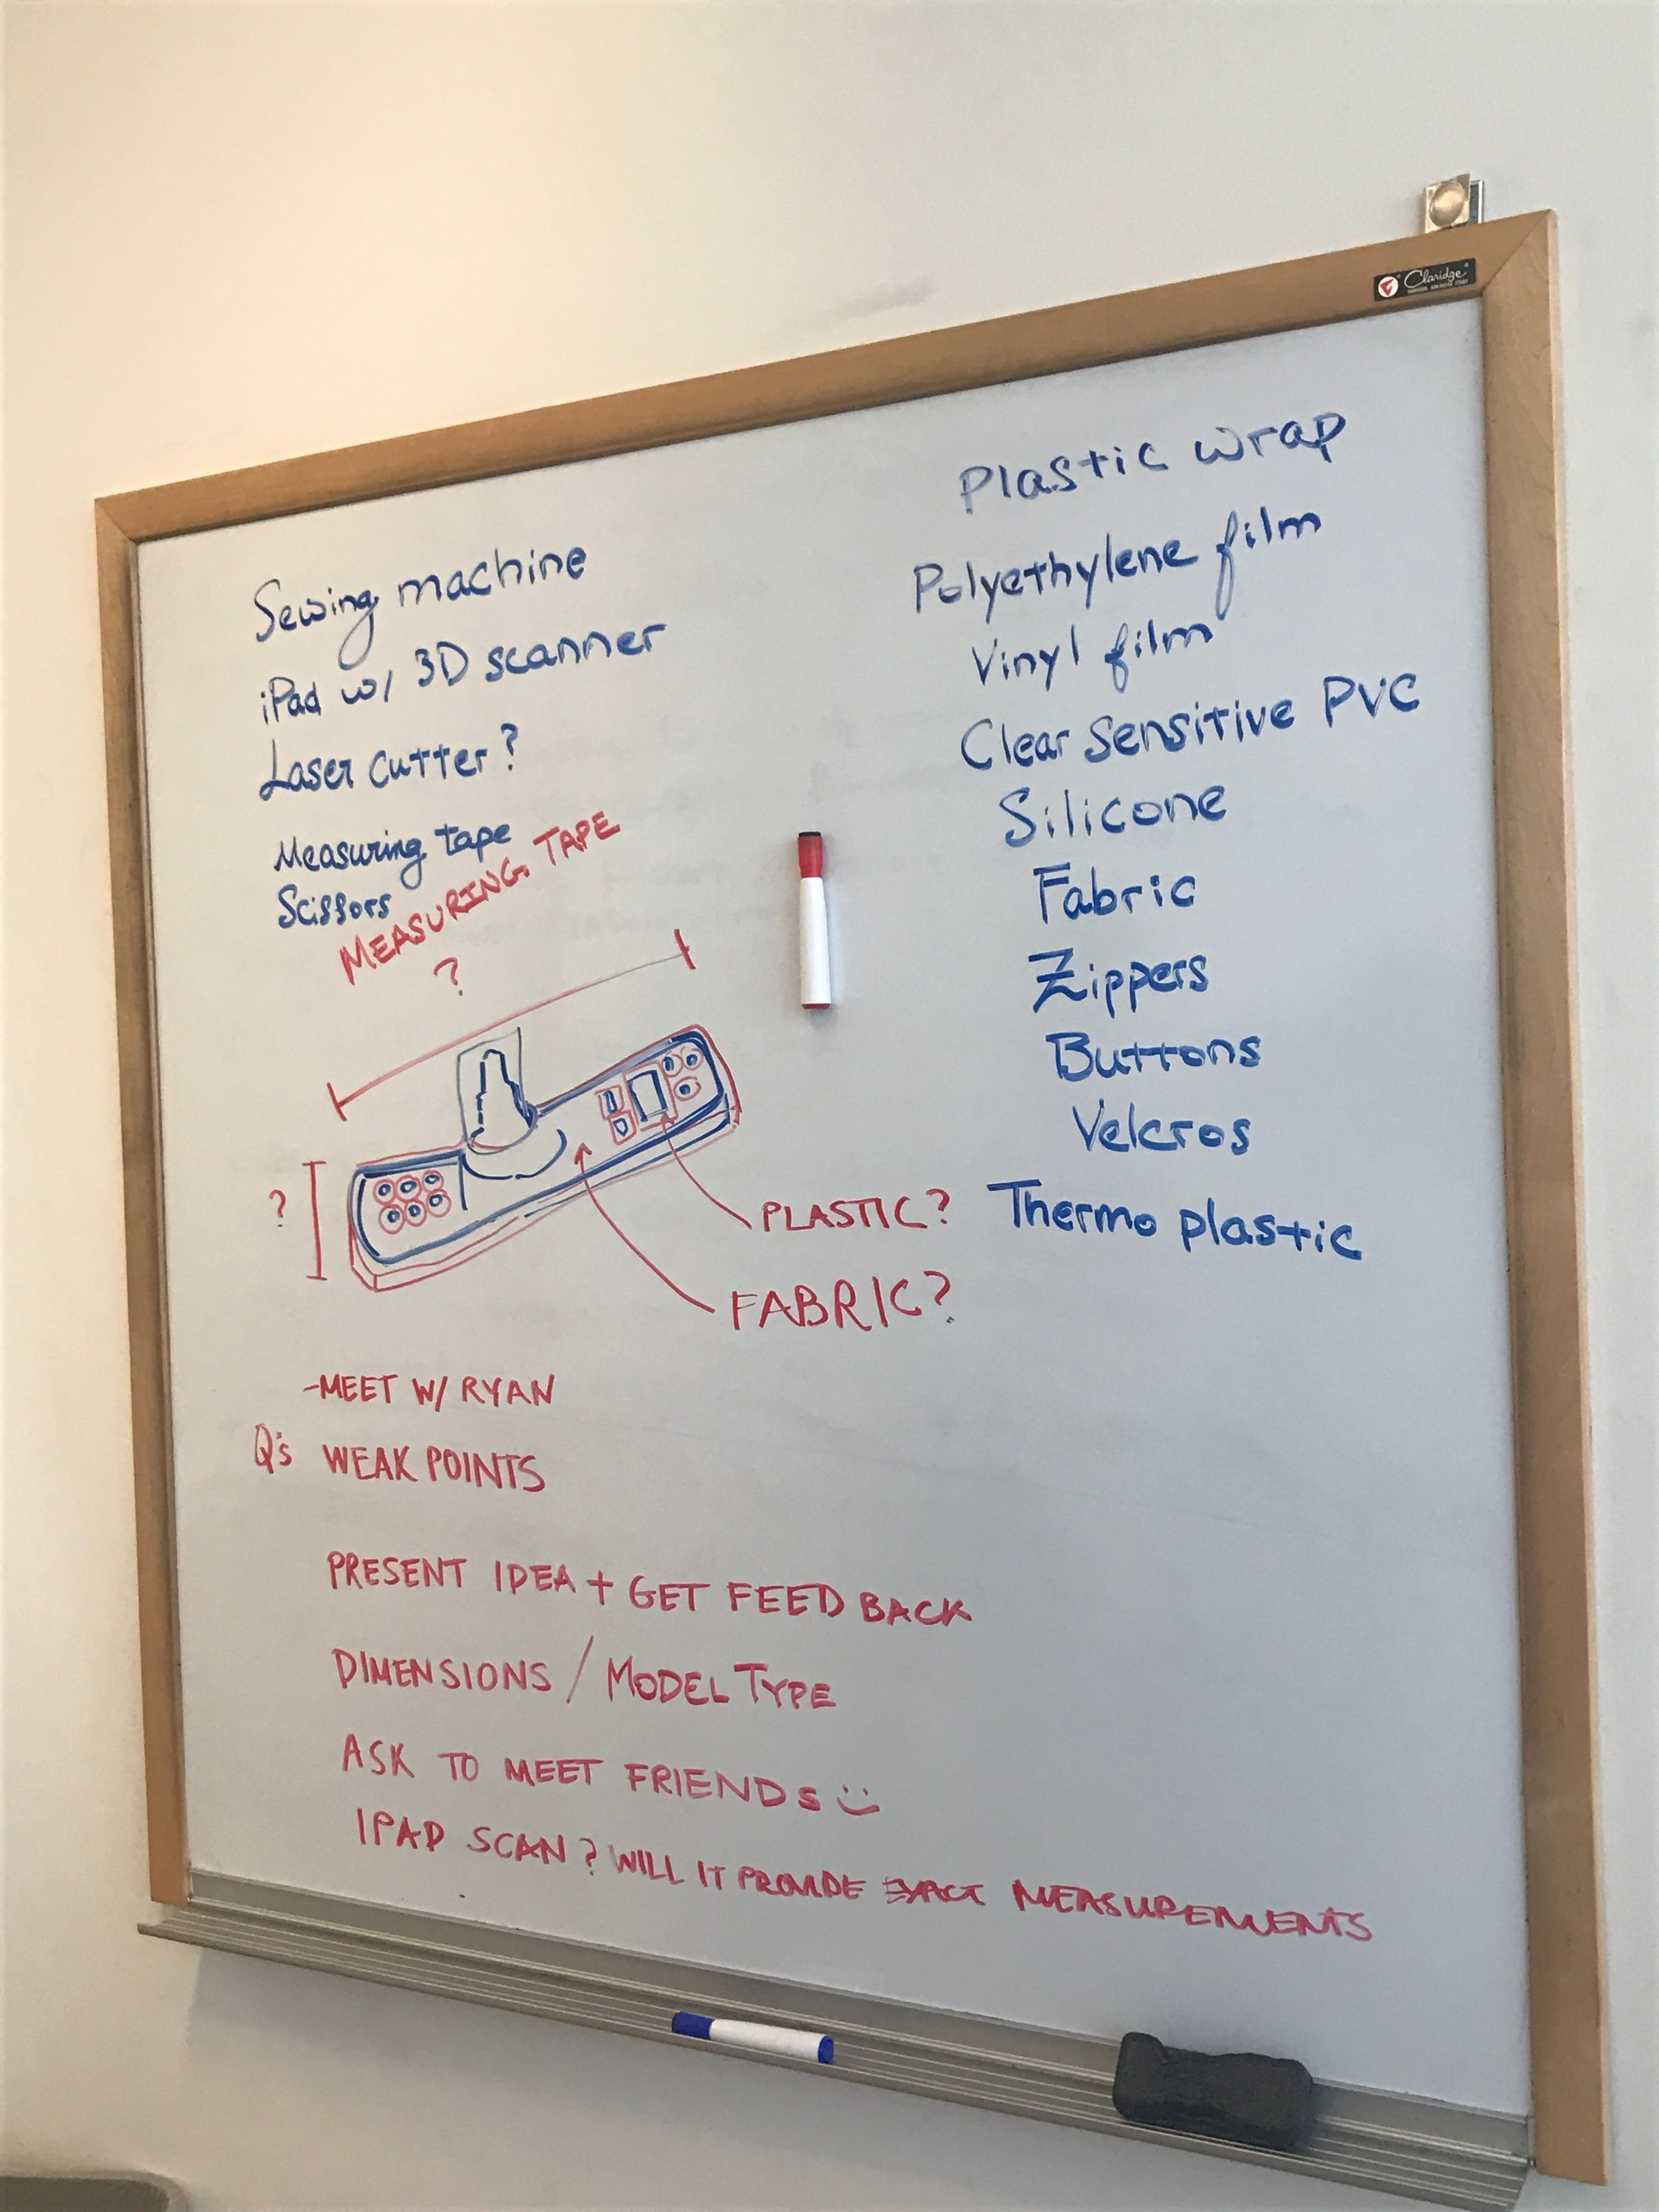 Claridge
Sewing machine
iPad w/ 3D scanner
Laser cutter?
Measuring tape
Scissors
MEASURING TAPE
?
?
PLASTIC?
FABRIC?
Plastic wrap
Polyethylene film
Vinyl film
Clear sensitive PVC
Silicone
Fabric
Zippers
Buttons
Velcros
Thermo plastic
-MEET W/ RYAN
Q's WEAK POINTS
PRESENT IDEA + GET FEEDBACK
DIMENSIONS / MODEL TYPE
ASK TO MEET FRIENDS
IPAD SCAN? WILL IT PROVIDE EXACT MEASUREMENTS